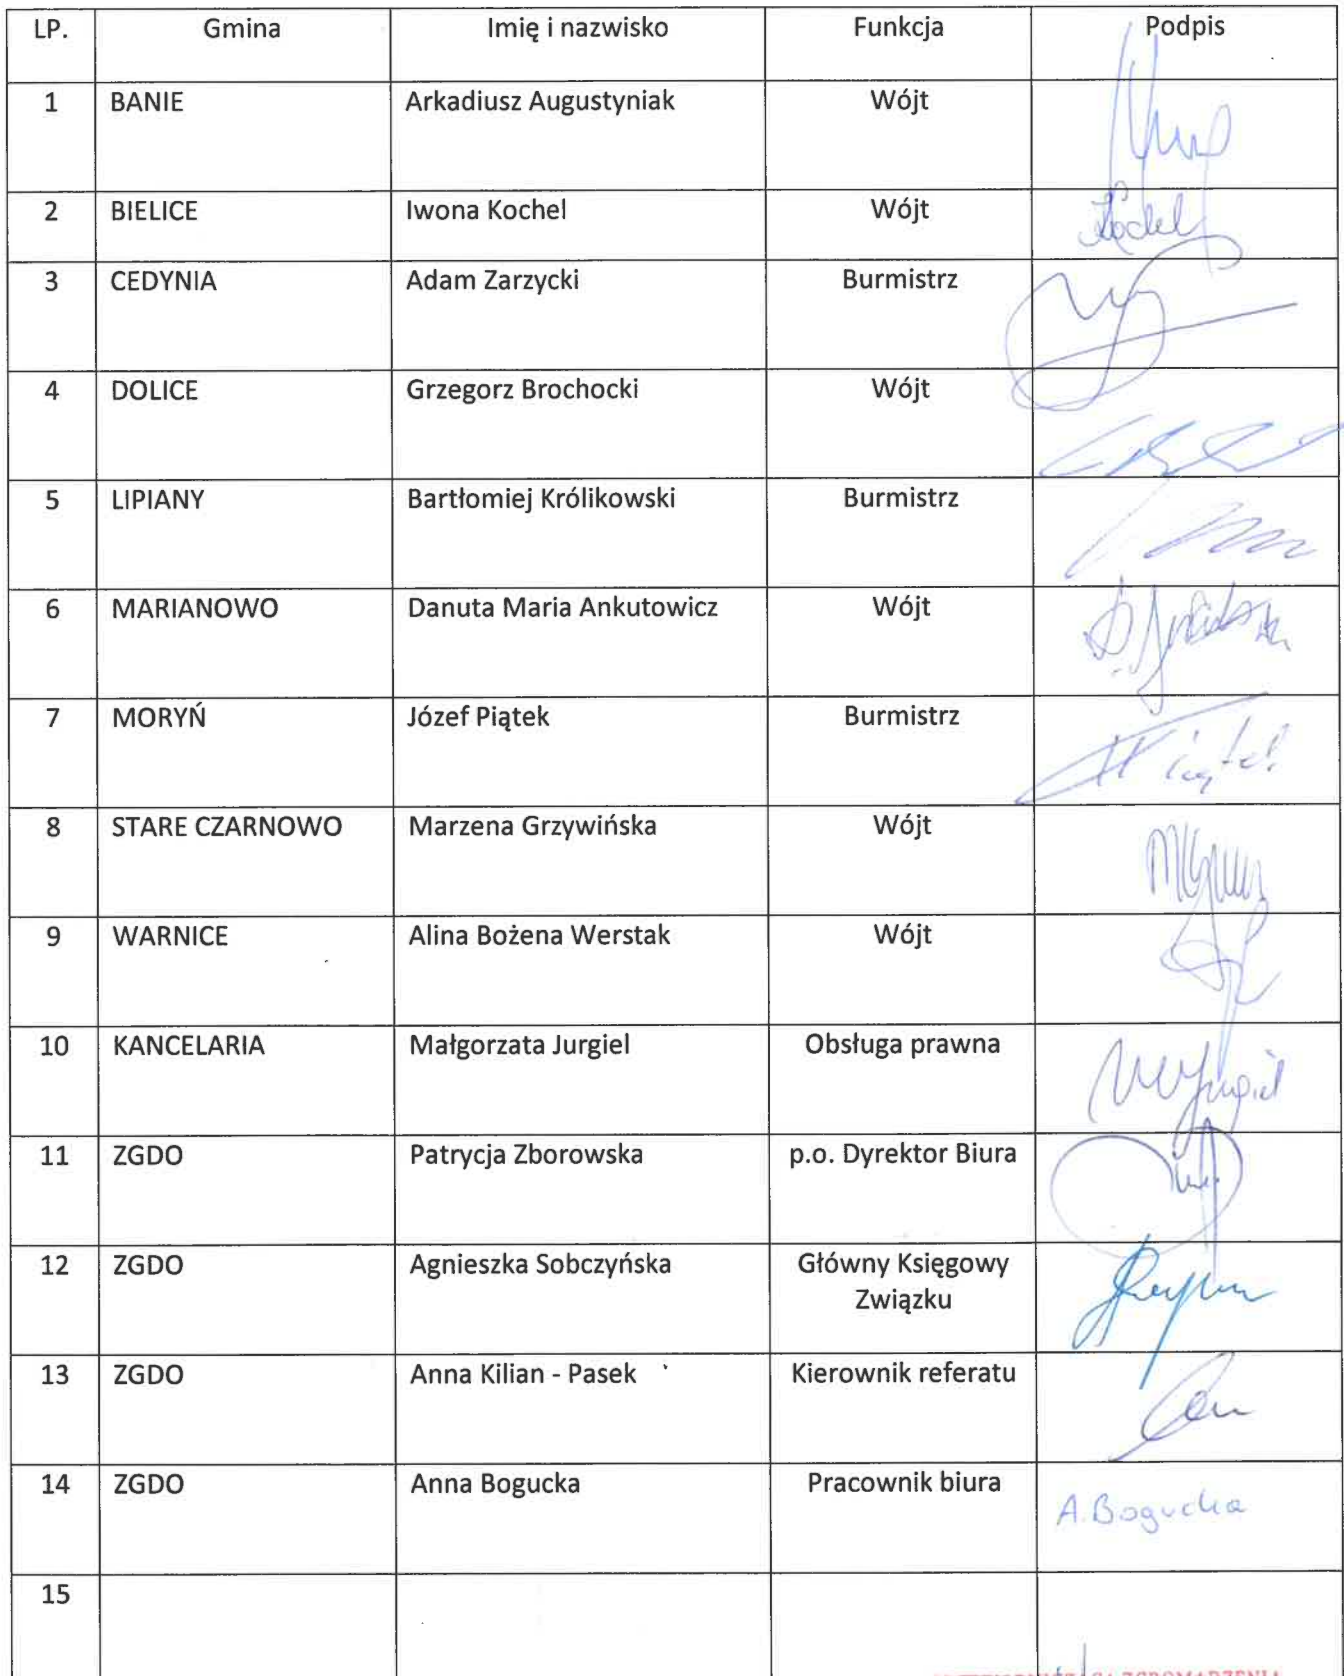 LP. Gmina Imię i nazwisko Funkcja Podpis
1 BANIE Arkadiusz Augustyniak Wójt
2 BIELICE Iwona Kochel Wójt Kochel
3 CEDYNIA Adam Zarzycki Burmistrz
4 DOLICE Grzegorz Brochocki Wójt
5 LIPIANY Bartłomiej Królikowski Burmistrz
6 MARIANOWO Danuta Maria Ankutowicz Wójt
7 MORYŃ Józef Piątek Burmistrz
8 STARE CZARNOWO Marzena Grzywińska Wójt
9 WARNICE Alina Bożena Werstak Wójt
10 KANCELARIA Małgorzata Jurgiel Obsługa prawna
11 ZGDO Patrycja Zborowska p.o. Dyrektor Biura
12 ZGDO Agnieszka Sobczyńska Główny Księgowy
Związku
13 ZGDO Anna Kilian - Pasek Kierownik referatu
14 ZGDO Anna Bogucka Pracownik biura A.Bogucka
15
ZGROMADZENIA